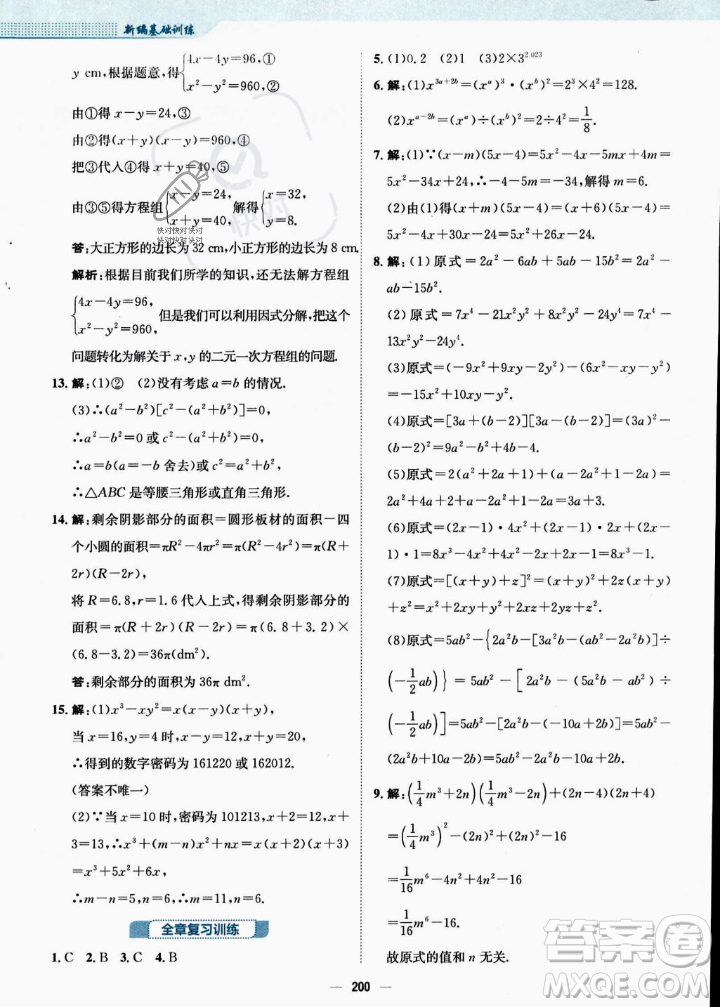 新编基础训练
y cm,根据题意,得{4x-4y=96,① x²-y²=960,②
由①得 x-y=24,③
由②得(x+y)(x-y)=960,④
把③代入④得 x+y=40,⑤
由③⑤得方程组{x-y=24, x+y=40, 解得{x=32, y=8.
快对快对快对
快对快对快对
快对
答:大正方形的边长为 32 cm,小正方形的边长为 8 cm.
解析:根据目前我们所学的知识,还无法解方程组
{4x-4y=96, x²-y²=960, 但是我们可以利用因式分解,把这个
问题转化为解关于 x,y 的二元一次方程组的问题.
13. 解:(1)② (2)没有考虑 a=b 的情况.
(3)∴(a²-b²)[c²-(a²+b²)]=0,
∴a²-b²=0 或 c²-(a²+b²)=0,
∴a=b(a=-b 舍去)或 c²=a²+b²,
∴△ABC 是等腰三角形或直角三角形.
14. 解:剩余阴影部分的面积=圆形板材的面积-四
个小圆的面积=πR²-4πr²=π(R²-4r²)=π(R+
2r)(R-2r).
将 R=6.8,r=1.6 代入上式,得剩余阴影部分的面
积=π(R+2r)(R-2r)=π(6.8+3.2)×
(6.8-3.2)=36π(dm²).
答:剩余部分的面积为 36π dm².
15. 解:(1)x³-xy²=x(x-y)(x+y),
当 x=16,y=4 时,x-y=12,x+y=20,
∴得到的数字密码为 161220 或 162012.
(答案不唯一)
(2)∵当 x=10 时,密码为 101213,x+2=12,x
+3=13,∴x³+(m-n)x²+nx=x(x+2)(x+3)=
x³+5x²+6x,
∴m-n=5,n=6,∴m=11.
全章复习训练
1. C 2. B 3. C 4. B
5. (1)0.2 (2)1 (3)2×3²⁰²³
6. 解:(1)x³ᵃ⁺²ᵇ=(xᵃ)³·(xᵇ)²=2³×4²=128.
(2)xᵃ⁻²ᵇ=(xᵃ)÷(xᵇ)²=2÷4²=1/8.
7. 解:(1)∵(x-m)(5x-4)=5x²-4x-5mx+4m=
5x²-34x+24,∴4m=24,解得 m=6.
(2)由(1)得(x+m)(5x-4)=(x+6)(5x-4)=
5x²-4x+30x-24=5x²+26x-24.
8. 解:(1)原式=2a²-6ab+5ab-15b²=2a²-
ab-15b².
(2)原式=7x⁴-21x²y²+8x²y²-24y⁴=7x⁴-13
x²y²-24y⁴.
(3)原式=(-9x²+4xy²)÷(-xy)=9x³y-
4x²y.
(4)原式=[3a+(b-2)][3a-(b-2)]=(3a)²
-(b-2)²=9a²-b²+4b-4.
(5)原式=2(a²+2a+1)+(a-2a²+1-2a)=
2a²+4a+2+a-2a²+1-2a=3a+3.
(6)原式=(2x-1)·(4x²+2x+1)=8x³+4x²+
2x-4x²-2x-1=8x³-1.
(7)原式=[(x+y)+z]²=(x+y)²+2z(x+y)
+z²=x²+y²+z²+2xy+2xz+2yz.
(8)原式=5ab²-{2a²b-[3ab²-(4ab²-2a²b)]÷
(-1/2ab)}=5ab²-[2a²b-(2a²b-ab²)÷
(-1/2ab)]=5ab²-[2a²b-(2b-4a)]=5ab²-
(2a²b+4a-2b)=5ab²-2a²b-4a+2b.
9. 解:(1/4m³+2n)(1/4m³-2n)+(2n-4)(2n+4)
=(1/4m³)²-(2n)²+(2n)²-16
=1/16m⁶-4n²+4n²-16
=1/16m⁶-16.
故原式的值和 n 无关.
200
答案圈
MXQE.COM